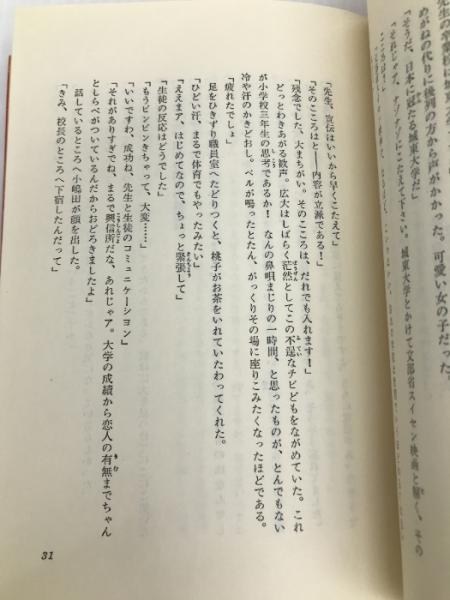 先生の卒業校は城
めがねの代りに後列の方から声がかかった。可愛い女の子だった。
「そうだ、日本に冠たる城東大学だ」
「それじゃア、ナゾナゾにこたえて下さい。城東大学とかけて文部省スイセン映画と解く、その
「先生、宣伝はいいから早くこたえて」
「そのこころはと――内容が立派である！」
「残念でした、大まちがい。そのこころは、だれでも入れます！」
どっとわきあがる歓声。広大はしばらく茫然としてこの不逞なチビどもをながめていた。これ
が小学校三年生の思考であるか！　なんの鼻唄まじりの一時間、と思ったものが、とんでもない
冷や汗のかきどおし。ベルが鳴ったとたん、がっくりその場に座りこみたくなったほどである。
「疲れたでしょ」
足をひきずり職員室へたどりつくと、桃子がお茶をいれていたわってくれた。
「ひどい汗、まるで体育でもやったみたい」
「ええまア、はじめてなので、ちょっと緊張して」
「生徒の反応はどうでした」
「もうピンピンきちゃって、大変……」
「いいですわ、成功ね、先生と生徒のコミュニケーション」
「それがありすぎでね、まるで興信所だな、あれじゃア。大学の成績から恋人の有無までちゃん
としらべがついているんだからおどろきましたよ」
話しているところへ小嶋田が顔を出した。
「きみ、校長のところへ下宿したんだって」
31